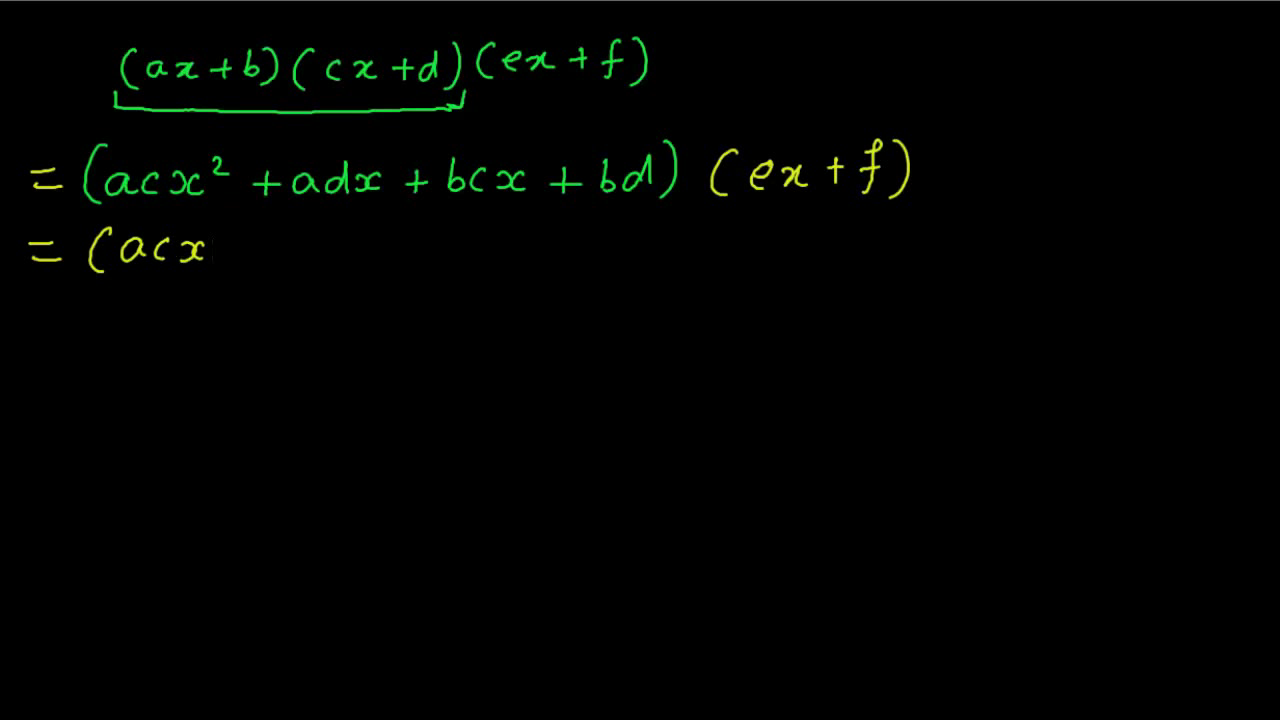 (ax+b)(cx+d)(ex+f)
= (acx² + adx + bcx + bd) (ex+f)
= (acx